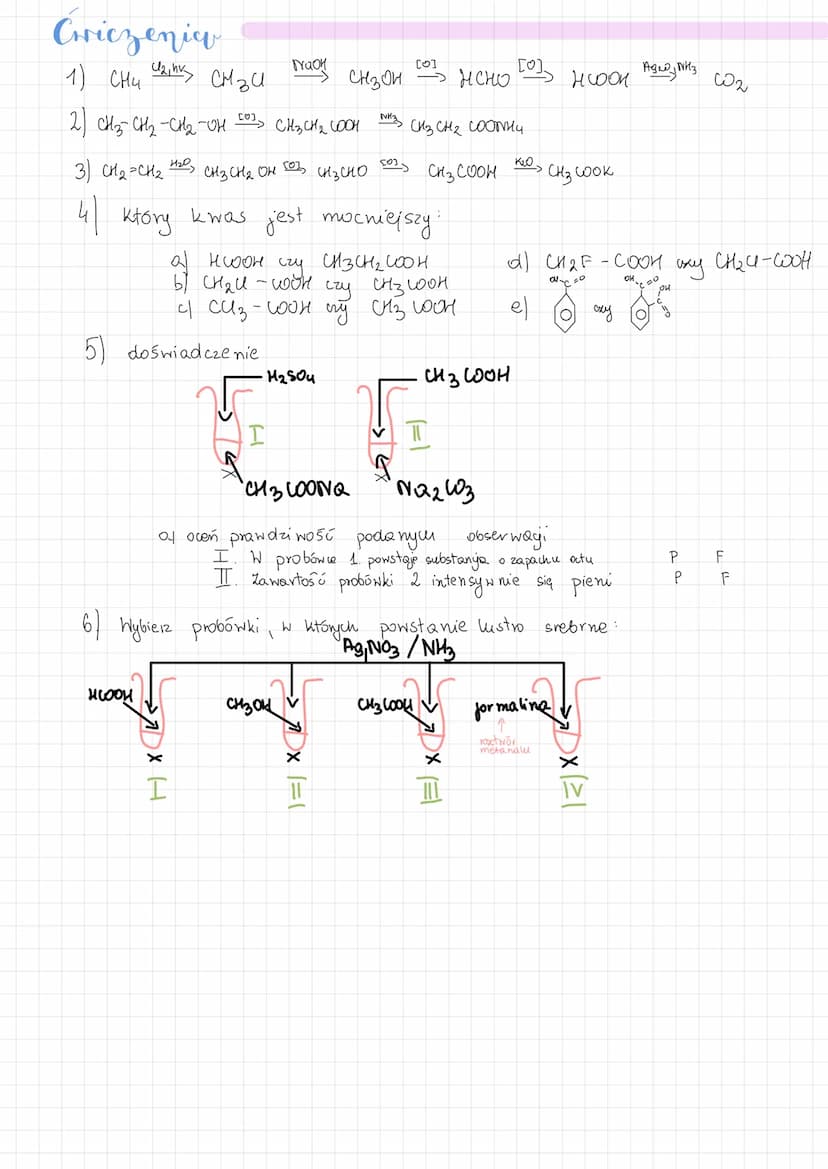 Ćwiczenia
1) CH4 Cl2,hν→ CH3Cl NaOH→ CH3OH [O]→ HCHO [O]→ HCOOH Ag2O,NH3→ CO2
2) CH3-CH2-CH2-OH [O]→ CH3CH2COOH NH3→ CH3CH2COONH4
3) CH2=CH2 H2O→ CH3CH2OH [O]→ CH3CHO [O]→ CH3COOH K2O→ CH3COOK
4) który kwas jest mocniejszy:
a) HCOOH czy CH3CH2COOH d) CH2F-COOH czy CH2Cl-COOH
b) CH2Cl-COOH czy CH3COOH
c) CCl3-COOH czy CH3COOH e) OH-C=O czy OH-C=O C=O OH
5) doświadczenie
H2SO4 CH3COOH
I II
CH3COONa Na2CO3
a) oceń prawdziwość podanych obserwacji
I. W probówce 1. powstaje substancja o zapachu octu P F
II. Zawartość probówki 2 intensywnie się pieni P F
6) Wybierz probówki, w których powstanie lustro srebrne:
AgNO3 / NH3
HCOOH CH3OH CH3COOH formalina
↑
roztwór
metanalu
I II III IV